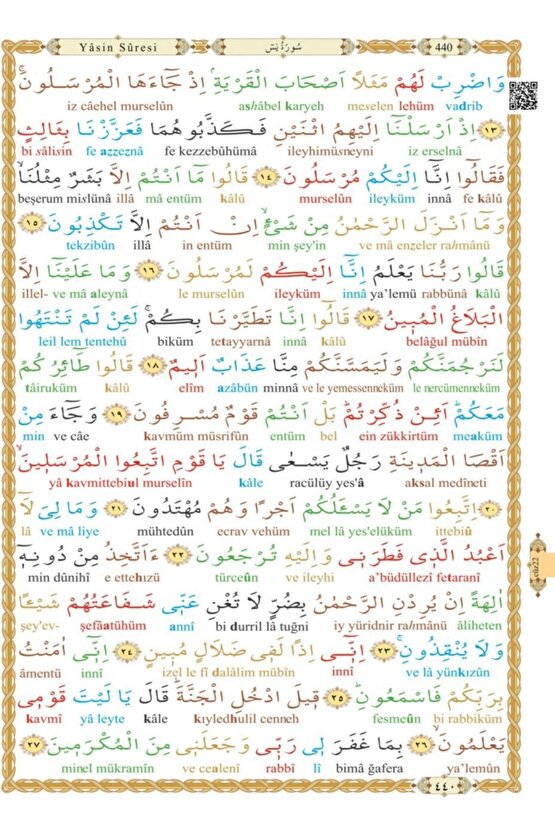 Yâsin Sûresi سُورَةُ يٰسٓ 440
وَاضْرِبْ لَهُمْ مَثَلًا اَصْحَابَ الْقَرْيَةِۢ اِذْ جَٓاءَهَا الْمُرْسَلُونَۚ
vadrib lehüm meselen ashâbel karyeh iz câehel murselûn
﴿١٣﴾ اِذْ اَرْسَلْنَٓا اِلَيْهِمُ اثْنَيْنِ فَكَذَّبُوهُمَا فَعَزَّزْنَا بِثَالِثٍ
iz erselnâ ileyhimüsneyni fe kezzebûhümâ fe azzeznâ bi sâlisin
فَقَالُٓوا اِنَّٓا اِلَيْكُمْ مُرْسَلُونَ ﴿١٤﴾ قَالُوا مَٓا اَنْتُمْ اِلَّا بَشَرٌ مِثْلُنَاۙ
fe kâlû innâ ileyküm murselûn kâlû mâ entüm illâ beşerum mislünâ
وَمَٓا اَنْزَلَ الرَّحْمٰنُ مِنْ شَيْءٍۙ اِنْ اَنْتُمْ اِلَّا تَكْذِبُونَ ﴿١٥﴾
ve mâ enzeler rahmânü min şey'in in entüm illâ tekzibûn
قَالُوا رَبُّنَا يَعْلَمُ اِنَّٓا اِلَيْكُمْ لَمُرْسَلُونَ ﴿١٦﴾ وَمَا عَلَيْنَٓا اِلَّا
kâlû rabbünâ ya'lemü innâ ileyküm le murselûn ve mâ aleynâ illel-
الْبَلَاغُ الْمُبِينُ ﴿١٧﴾ قَالُٓوا اِنَّا تَطَيَّرْنَا بِكُمْۚ لَئِنْ لَمْ تَنْتَهُوا
belâğul mübîn kâlû innâ tetayyarnâ biküm leil lem tentehû
لَنَرْجُمَنَّكُمْ وَلَيَمَسَّنَّكُمْ مِنَّا عَذَابٌ اَلِيمٌ ﴿١٨﴾ قَالُوا طَٓائِرُكُمْ
le nercümenneküm ve le yemessenneküm minnâ azâbün elîm kâlû tâiruküm
مَعَكُمْۜ اَئِنْ ذُكِّرْتُمْۜ بَلْ اَنْتُمْ قَوْمٌ مُسْرِفُونَ ﴿١٩﴾ وَجَٓاءَ مِنْ
meaküm ein zükkirtüm bel entüm kavmüm müsrifûn ve câe min
اَقْصَا الْمَدِينَةِ رَجُلٌ يَسْعٰى قَالَ يَا قَوْمِ اتَّبِعُوا الْمُرْسَلِينَۙ
aksal medîneti racülüy yes'â kâle yâ kavmittebiul murselîn
﴿٢٠﴾ اِتَّبِعُوا مَنْ لَا يَسْـَٔلُكُمْ اَجْرًا وَهُمْ مُهْتَدُونَ ﴿٢١﴾ وَمَا لِيَ لَٓا
ittebiû mel lâ yes'elüküm ecrav vehüm mühtedûn ve mâ liye lâ
اَعْبُدُ الَّذِي فَطَرَنِي وَاِلَيْهِ تُرْجَعُونَ ﴿٢٢﴾ ءَاَتَّخِذُ مِنْ دُونِهِٓ
a'büdüllezî fetaranî ve ileyhi türceûn e ettehızü min dûnihî
اٰلِهَةً اِنْ يُرِدْنِ الرَّحْمٰنُ بِضُرٍّ لَا تُغْنِ عَنِّي شَفَاعَتُهُمْ شَيْـًٔا
âliheten iy yüridnir rahmânü bi durril lâ tuğni annî şefâatühüm şey'ev-
وَلَا يُنْقِذُونِۚ ﴿٢٣﴾ اِنِّٓي اِذًا لَفِي ضَلَالٍ مُبِينٍ ﴿٢٤﴾ اِنِّٓي اٰمَنْتُ
ve lâ yünkızûn innî izel le fî dalâlim mübîn innî âmentü
بِرَبِّكُمْ فَاسْمَعُونِۜ ﴿٢٥﴾ قِيلَ ادْخُلِ الْجَنَّةَۜ قَالَ يَا لَيْتَ قَوْمِي
bi rabbiküm fesmeûn kıyledhulil cenneh kâle yâ leyte kavmî
يَعْلَمُونَۙ ﴿٢٦﴾ بِمَا غَفَرَ لِي رَبِّي وَجَعَلَنِي مِنَ الْمُكْرَمِينَ ﴿٢٧﴾
ya'lemûn bimâ ğafera lî rabbî ve cealenî minel mükramîn
cüz22
٤٤٠